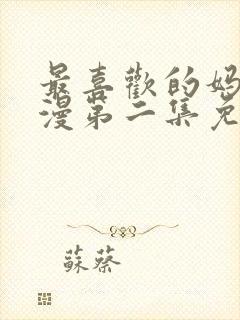 最喜歡的媽
漫第二集免
蘇蔡